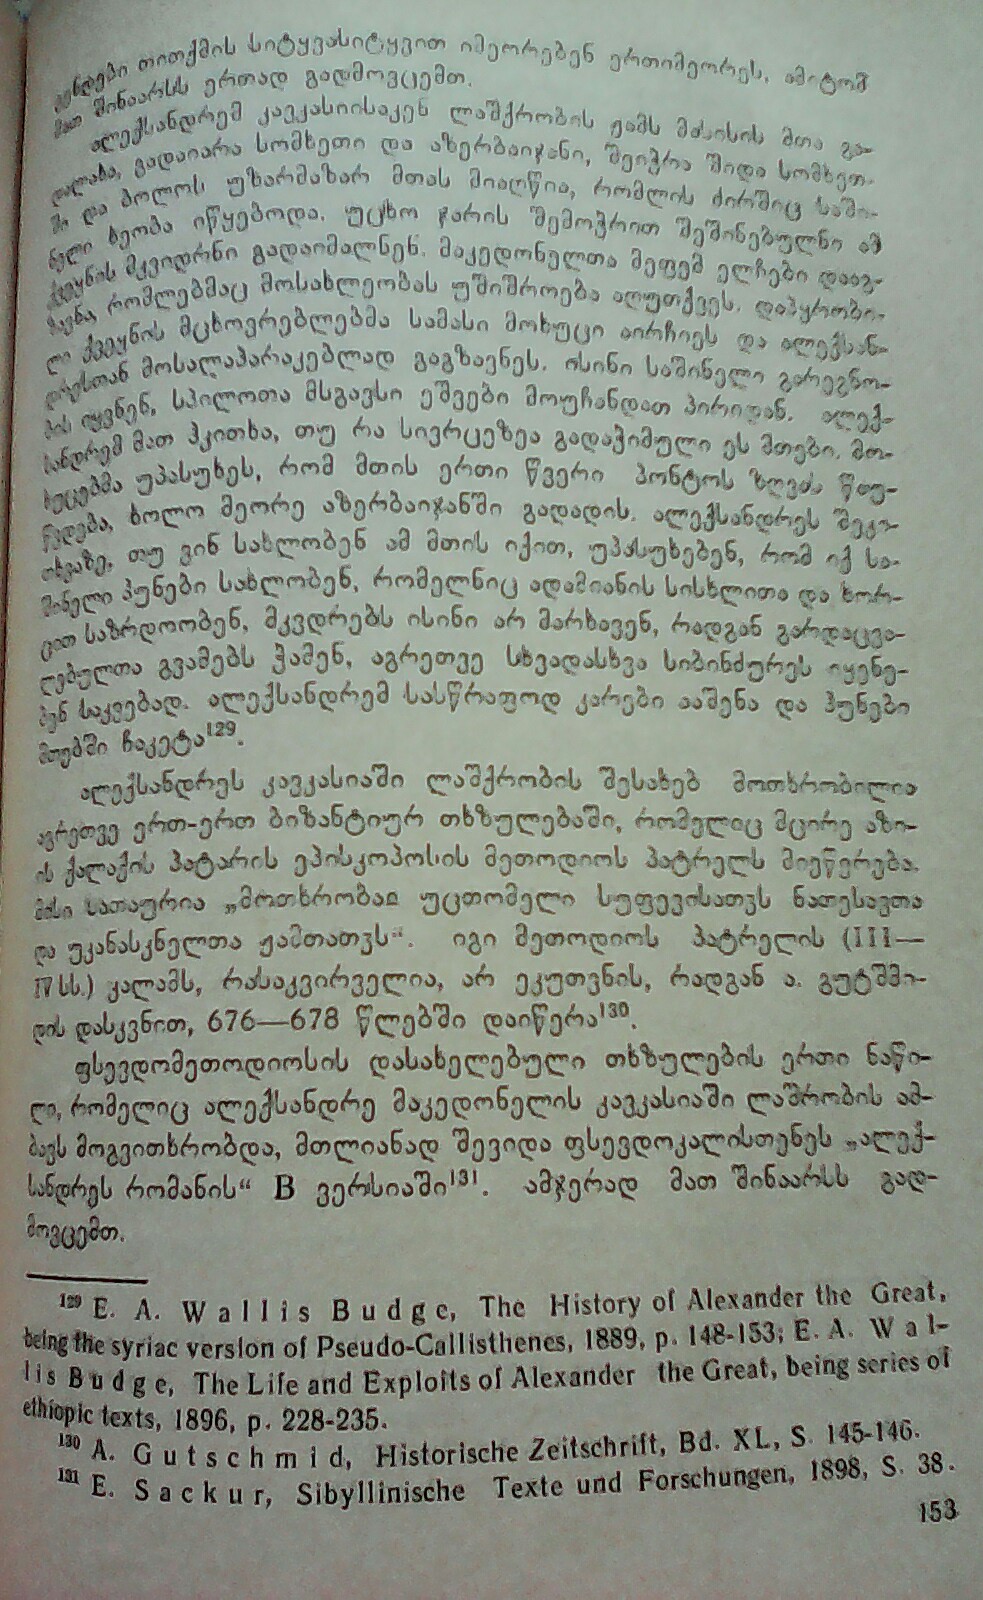 თითქმის სიტყვასიტყვით იმეორებენ ერთიმეორეს, ამიტომ
მათ შინაარსს ერთად გადმოვცემთ.
ალექსანდრემ კავკასიისაკენ ლაშქრობის ჟამს მასისის მთა გა-
დალახა, გადაიარა სომხეთი და აზერბაიჯანი, შეიჭრა შიდა სომხეთ-
ში და ბოლოს უზარმაზარ მთას მიაღწია, რომლის ძირშიც საში-
ნელი ხეობა იწყებოდა. უცხო ჯარის შემოჭრით შეშინებულნი ამ
ქვეყნის მკვიდრნი გადაიმალნენ. მაკედონელთა მეფემ ელჩები დააგ-
ზავნა, რომლებმაც მოსახლეობას უშიშროება აღუთქვეს. დაპყრობი-
ლი ქვეყნის მცხოვრებლებმა სამასი მოხუცი აირჩიეს და ალექსან-
დრესთან მოსალაპარაკებლად გაგზავნეს. ისინი საშინელი გარეგნო-
ბის იყვნენ, სპილოთა მსგავსი ეშვები მოუჩანდათ პირიდან. ალექ-
სანდრემ მათ ჰკითხა, თუ რა სივრცეზეა გადაჭიმული ეს მთები. მო-
ხუცებმა უპასუხეს, რომ მთის ერთი წვერი პონტოს ზღვას წთუ-
წვდება, ხოლო მეორე აზერბაიჯანში გადადის. ალექსანდრეს შეკი-
თხვაზე, თუ ვინ სახლობენ ამ მთის იქით, უპასუხებენ, რომ იქ სა-
შინელი ჰუნები სახლობენ, რომელნიც ადამიანის სისხლითა და ხორ-
ცით საზრდოობენ, მკვდრებს ისინი არ მარხავენ, რადგან გარდაცვა-
ლებულთა გვამებს ჭამენ, აგრეთვე სხვადასხვა სიბინძურეს იყენე-
ბენ საკვებად. ალექსანდრემ სასწრაფოდ კარები ააშენა და ჰუნები
მთებში ჩაკეტა¹²⁹.
ალექსანდრეს კავკასიაში ლაშქრობის შესახებ მოთხრობილია
აგრეთვე ერთ-ერთ ბიზანტიურ თხზულებაში, რომელიც მცირე აზი-
ის ქალაქის პატარის ეპისკოპოსის მეთოდიოს პატრელს მიეწერება.
მისი სათაურია „მოთხრობაჲ უცთომელი სუფევისათჳს ნათესავთა
და უკანასკნელთა ჟამთათჳს“. იგი მეთოდიოს პატრელის (III—
IV სს.) კალამს, რასაკვირველია, არ ეკუთვნის, რადგან ა. გუტშმი-
დის დასკვნით, 676—678 წლებში დაიწერა¹³⁰.
ფსევდომეთოდიოსის დასახელებული თხზულების ერთი ნაწი-
ლი, რომელიც ალექსანდრე მაკედონელის კავკასიაში ლაშრობის ამ-
ბავს მოგვითხრობდა, მთლიანად შევიდა ფსევდოკალისთენეს „ალექ-
სანდრეს რომანის“ B ვერსიაში¹³¹. ამჯერად მათ შინაარსს გად-
მოვცემთ.
¹²⁹ E. A. Wallis Budge, The History of Alexander the Great,
being the syriac version of Pseudo-Callisthenes, 1889, p. 148-153; E. A. Wal-
lis Budge, The Life and Exploits of Alexander the Great, being series of
ethiopic texts, 1896, p. 228-235.
¹³⁰ A. Gutschmid, Historische Zeitschrift, Bd. XL, S. 145-146.
¹³¹ E. Sackur, Sibyllinische Texte und Forschungen, 1898, S. 38.
153